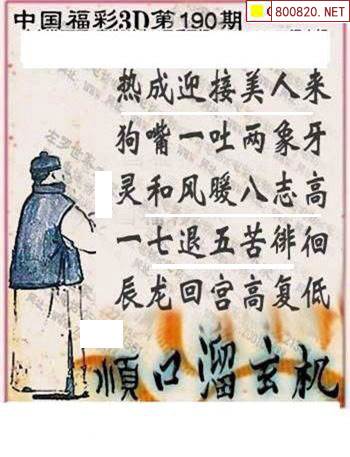 800820.NET
中国福彩3D第190期
热成迎接美人来
狗嘴一吐两象牙
灵和风暖八志高
一七退五苦徘徊
辰龙回宫高复低
順口溜玄机